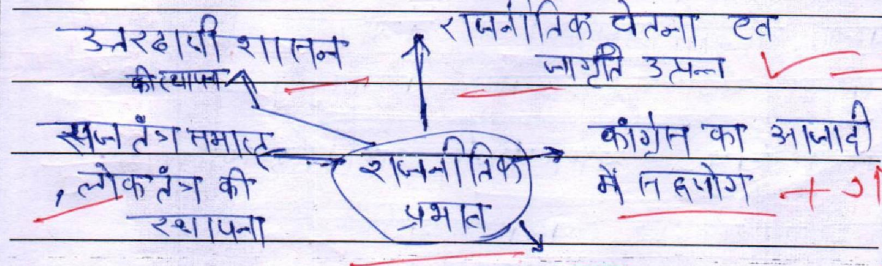 उत्तरदायी शासन
की स्थापना
राजनीतिक चेतना एवं
जागृति उत्पन्न
राजतंत्र समाप्त
, लोकतंत्र की
स्थापना
राजनीतिक
प्रभाव
कांग्रेस का आजादी
में सहयोग